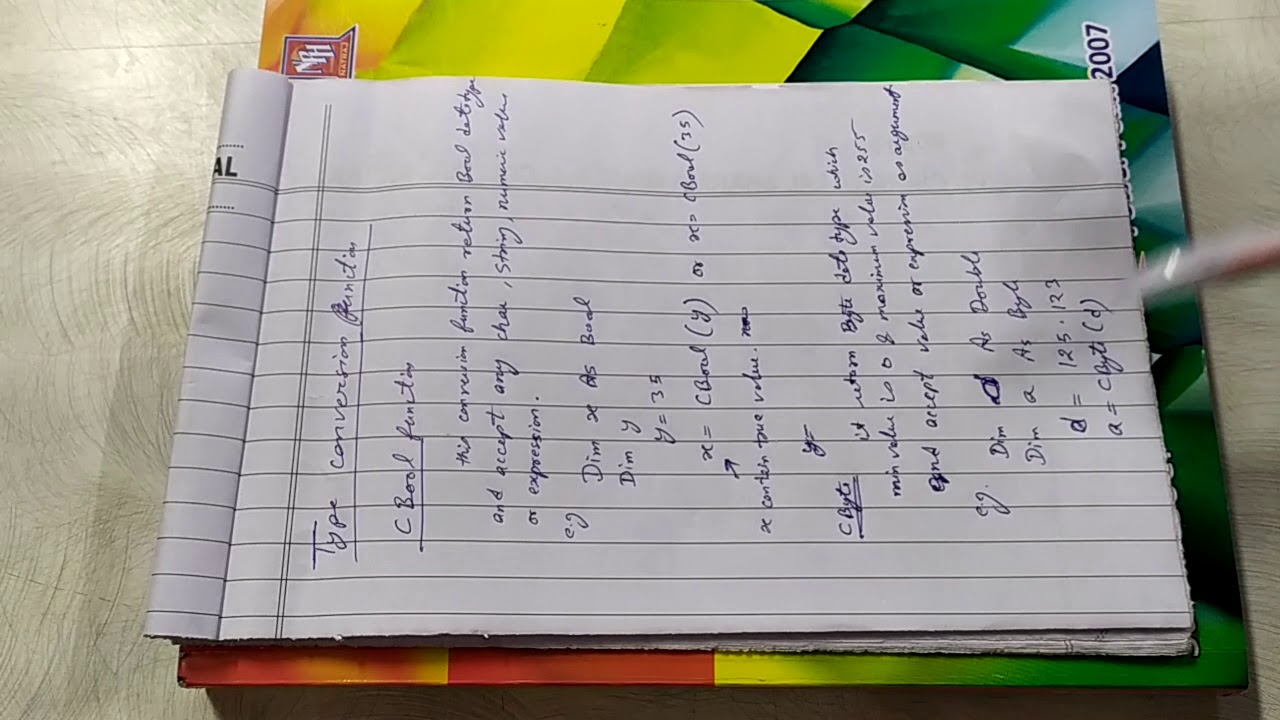 Type conversion function
CBool function
this conversion function return Bool data type
and accept any char, string, numeric value
or expression.
e.g
Dim x As Bool
Dim y
y = 35
x = CBool(y) or x = CBool(35)
x contain true value.
y=
CByte it return Byte data type which
min value is 0 & maximum value is 255
and accept value or expression as argument
e.g. Dim d As Double
Dim a As Byte
d = 125.123
a = CByte(d)
AL
NPH
2007